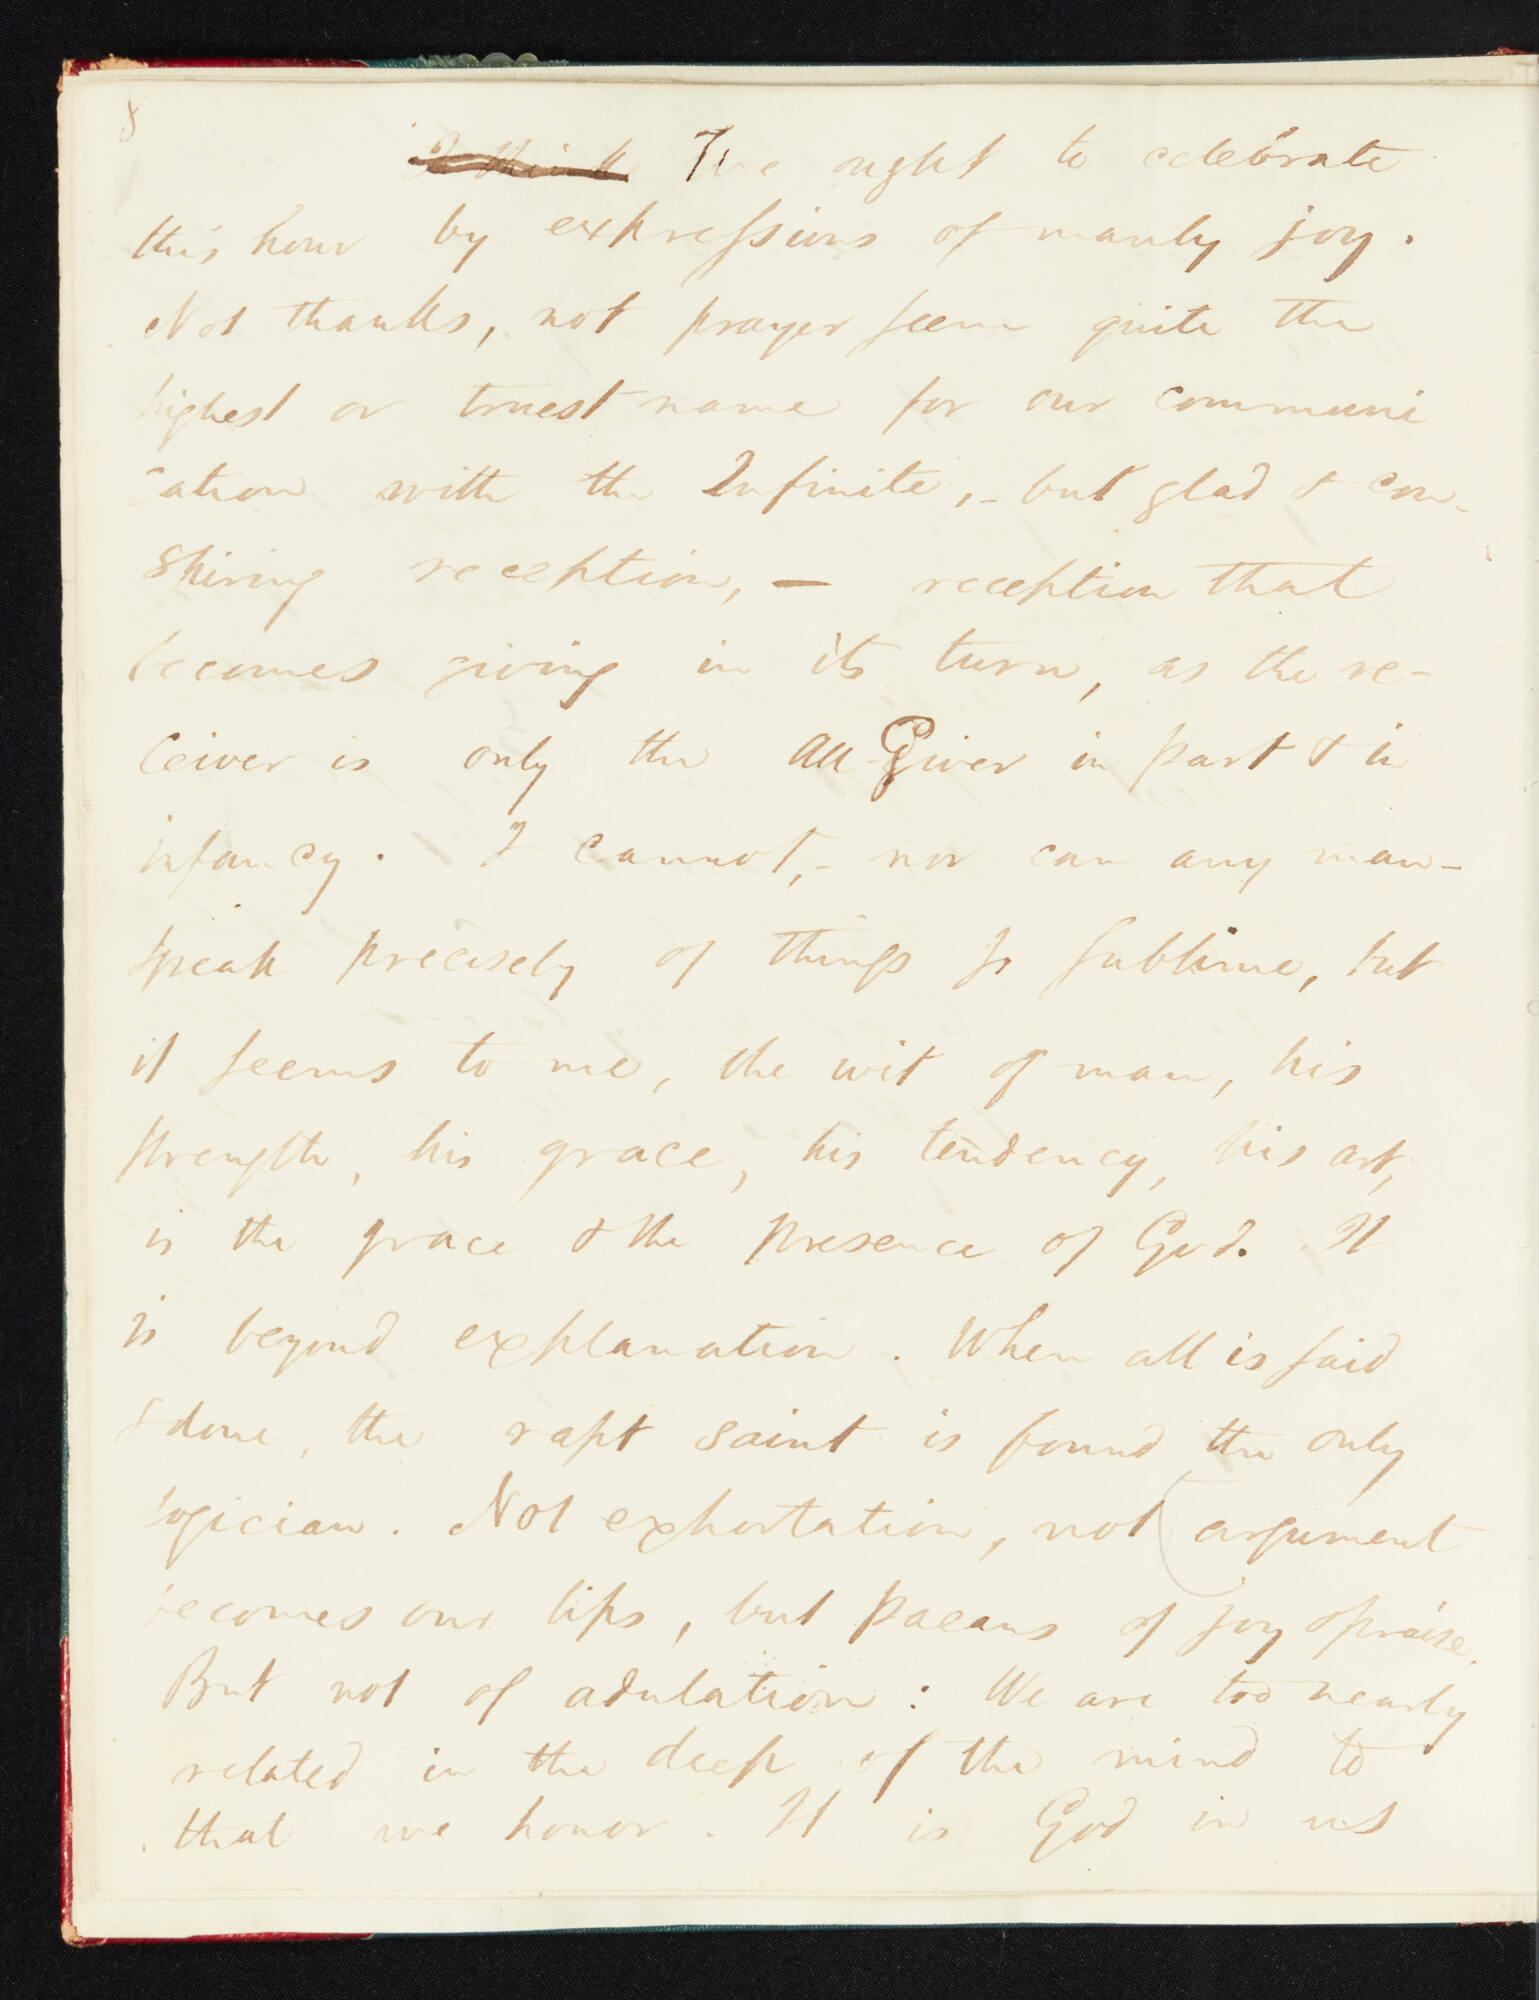 8
I think We ought to celebrate
this hour by expressions of manly joy.
Not thanks, not prayer seem quite the
highest or truest name for our communi
cation with the Infinite, - but glad & con-
spiring reception, — reception that
becomes giving in its turn, as the re-
ceiver is only the All-Giver in part & in
infancy. I cannot, - nor can any man -
speak precisely of things so sublime, but
it seems to me, the wit of man, his
strength, his grace, his tendency, his art,
is the grace & the presence of God. It
is beyond explanation. When all is said
& done, the rapt saint is found the only
logician. Not exhortation, not argument
becomes our lips, but paeans of joy & praise.
But not of adulation: We are too nearly
related in the deep of the mind to
that we honor. It is God in us